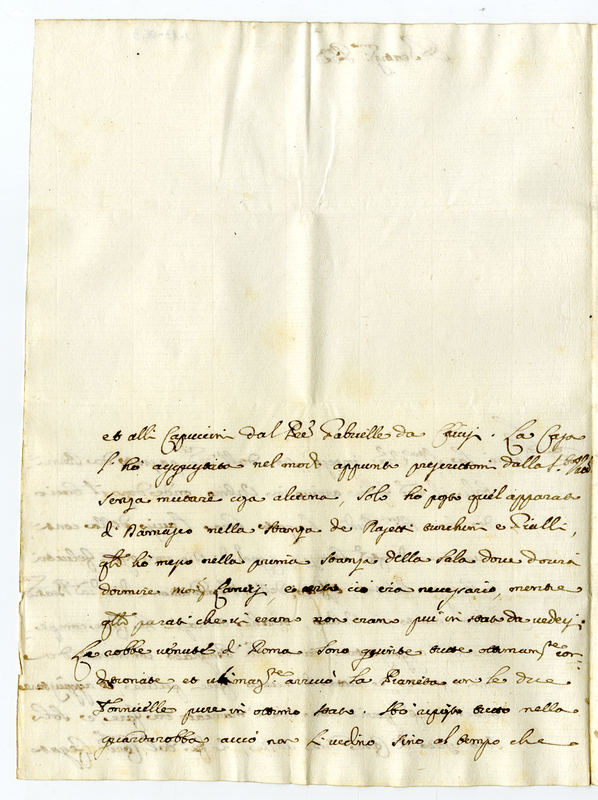 et alli Capuccini dal Pre Gabrielle da. La Casa
l'ho aggiustata nel modo appunto prescrittomi dalla
senza mutare cosa alcuna, solo ho posto quel apparato
di Damasco nella stanza de Rasetti turchini e Gialli,
qlli ho messo nella prima stanza della Sala dove dovrà
dormire, e ciò era necessario, mentre
qlli parati che vi erano non erano più in stato da vedersi.
Le robbe venute di Roma sono giunte tutte ottimamte con-
ditionate, et ultimamte arrivò la Pianeta con le due
Tonnicelle pure in ottimo stato. Hò riposto tutto nella
guardarobba acciò non si vedino sino al tempo che